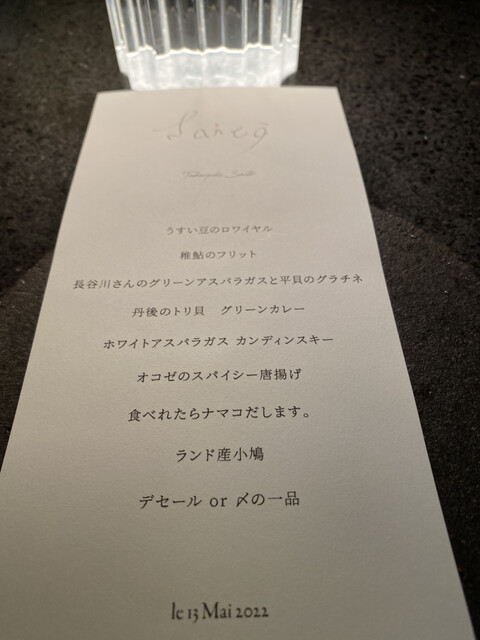 うすい豆のロワイヤル
稚鮎のフリット
長谷川さんのグリーンアスパラガスと平貝のグラチネ
丹後のトリ貝　グリーンカレー
ホワイトアスパラガス カンディンスキー
オコゼのスパイシー唐揚げ
食べれたらナマコだします。
ランド産小鳩
デセール or 〆の一品
le 13 Mai 2022